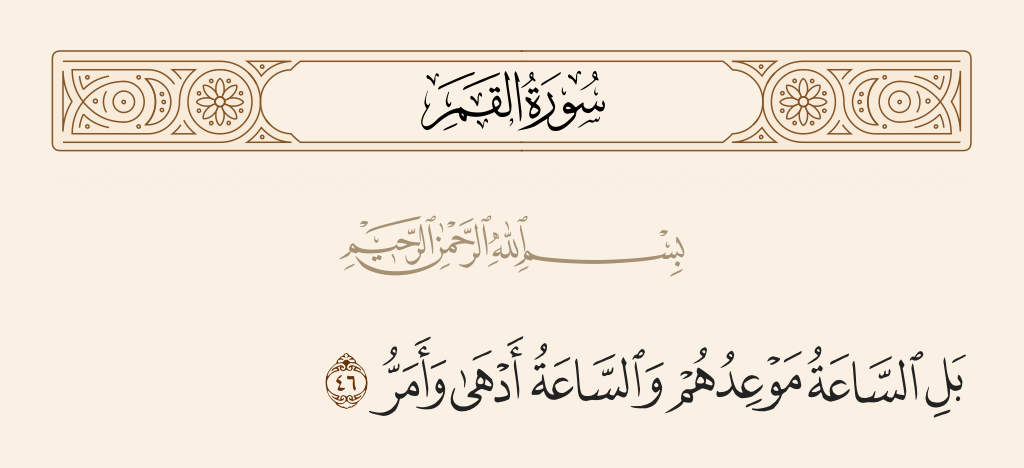 سُورَةُ القَمَرِ
بِسْمِ ٱللَّهِ ٱلرَّحْمَٰنِ ٱلرَّحِيمِ
بَلِ ٱلسَّاعَةُ مَوْعِدُهُمْ وَٱلسَّاعَةُ أَدْهَىٰ وَأَمَرُّ ٤٦